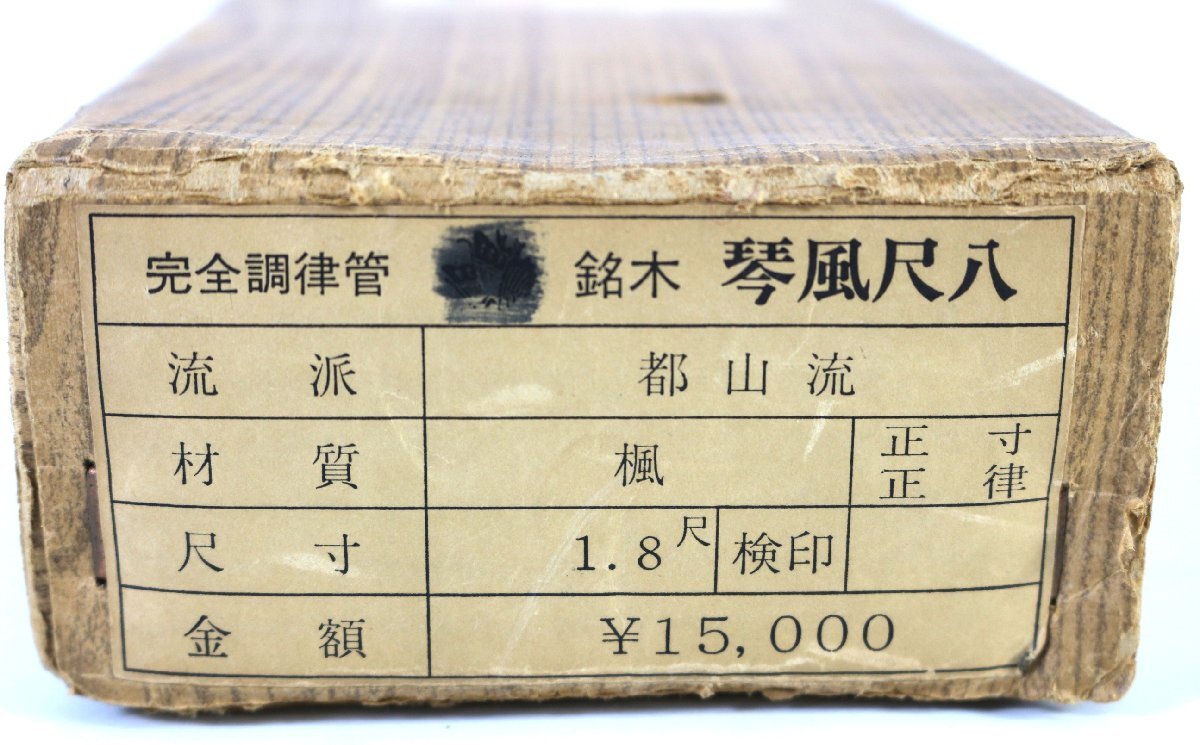 完全調律管 銘木 琴風尺八
流派 都山流
材質 楓 正寸 正律
尺寸 1.8尺 検印
金額 ¥15,000